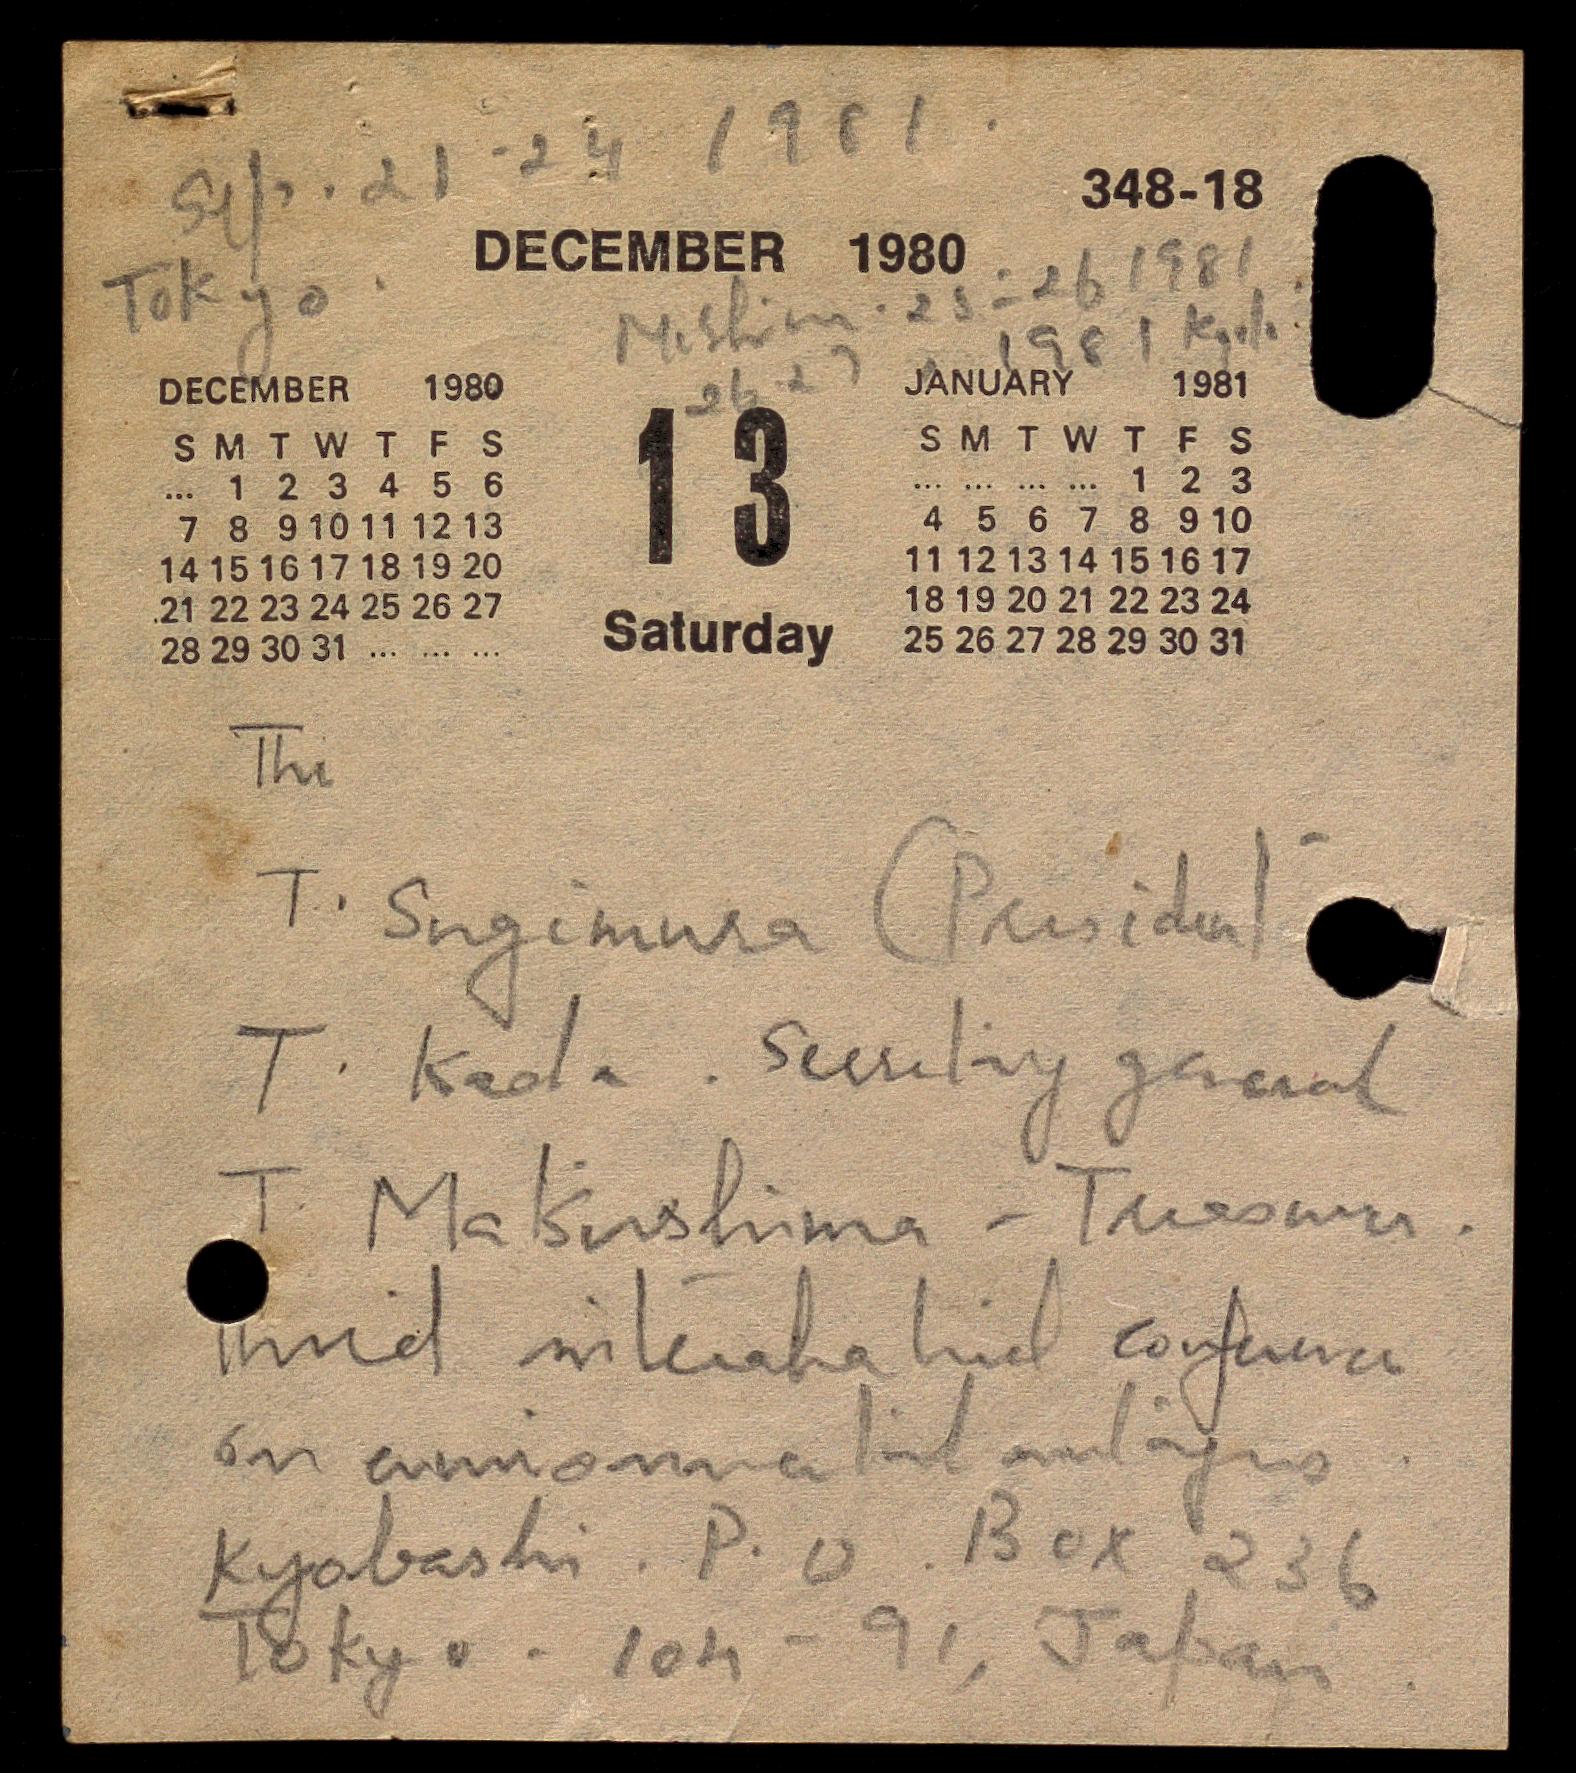 Sep. 21-24 1981.
348-18
DECEMBER 1980
Tokyo.
Mishima. 25-26 1981.
26-27 1981 Kyoto.
DECEMBER 1980
S M T W T F S
... 1 2 3 4 5 6
7 8 9 10 11 12 13
14 15 16 17 18 19 20
21 22 23 24 25 26 27
28 29 30 31 ... ... ...
13
Saturday
JANUARY 1981
S M T W T F S
... ... ... ... 1 2 3
4 5 6 7 8 9 10
11 12 13 14 15 16 17
18 19 20 21 22 23 24
25 26 27 28 29 30 31
The
T. Sugimura (President
T. Kada. Secretry general
T. Makinshima - Treasurer.
Third international conference
on environmental mutagens.
Kyobashi. P.O. Box 236
Tokyo - 104-91, Japan.